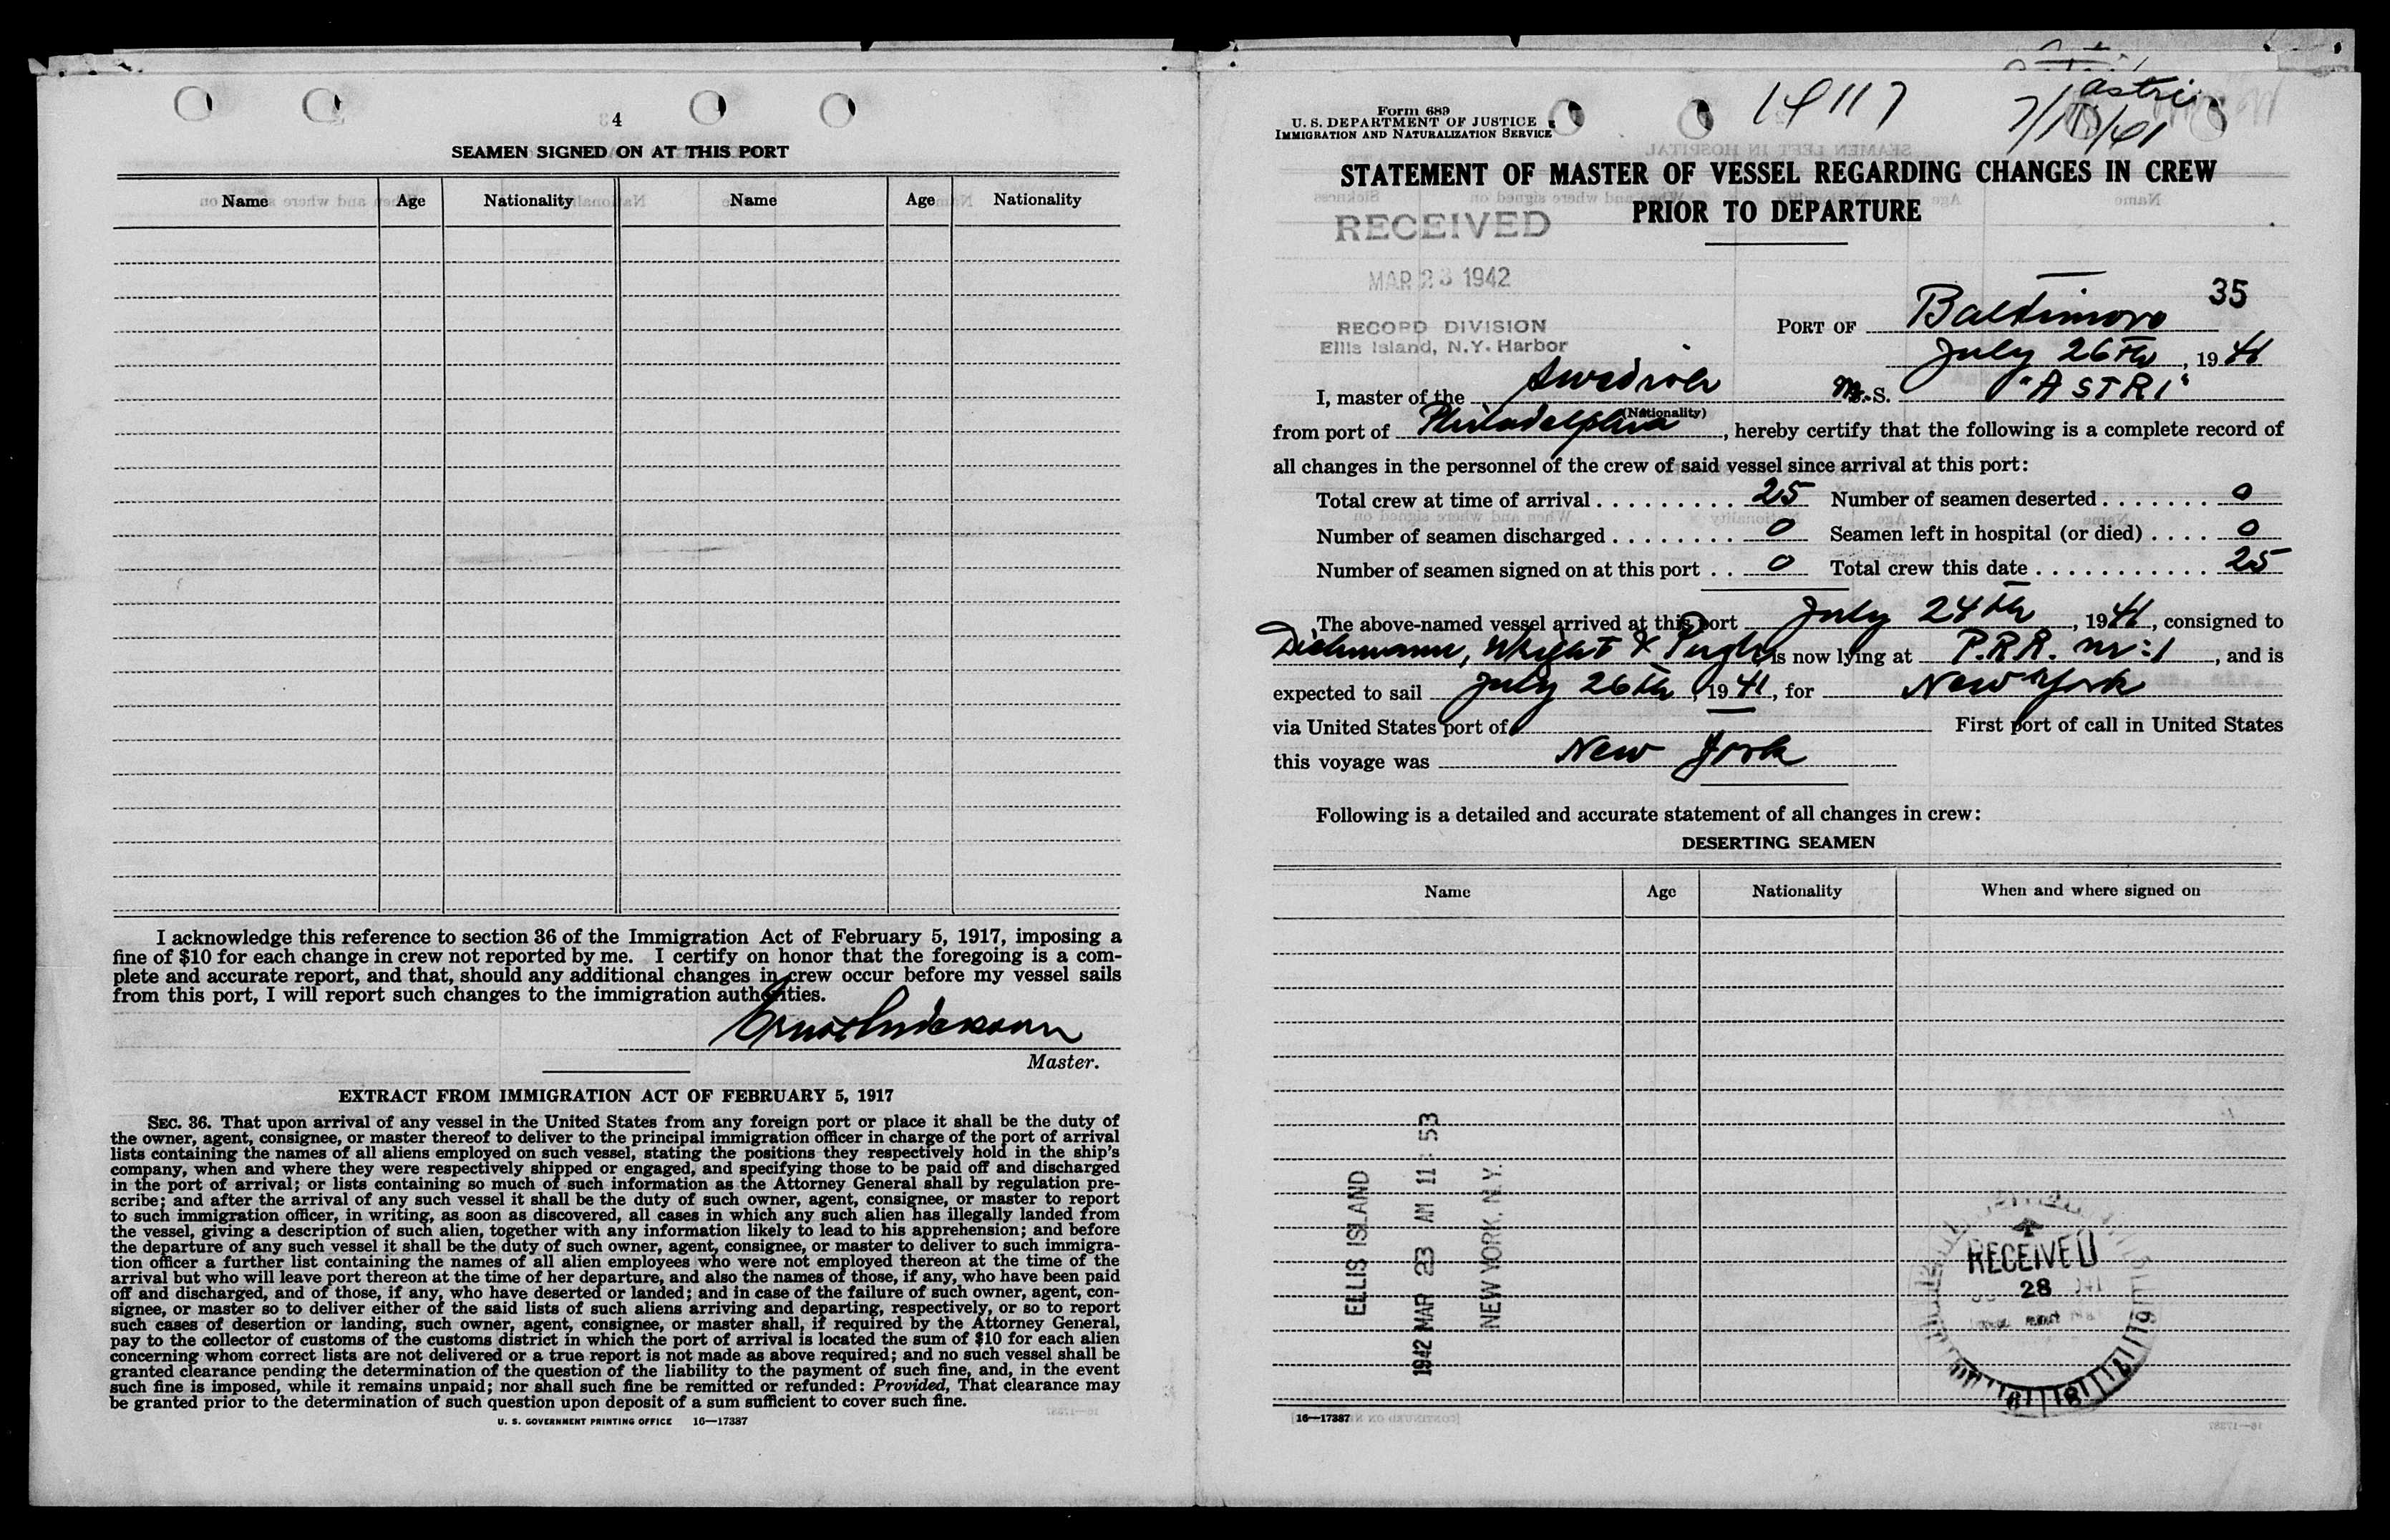 4
SEAMEN SIGNED ON AT THIS PORT
Name Age Nationality Name Age Nationality
I acknowledge this reference to section 36 of the Immigration Act of February 5, 1917, imposing a
fine of $10 for each change in crew not reported by me. I certify on honor that the foregoing is a com-
plete and accurate report, and that, should any additional changes in crew occur before my vessel sails
from this port, I will report such changes to the immigration authorities.
Master.
EXTRACT FROM IMMIGRATION ACT OF FEBRUARY 5, 1917
SEC. 36. That upon arrival of any vessel in the United States from any foreign port or place it shall be the duty of
the owner, agent, consignee, or master thereof to deliver to the principal immigration officer in charge of the port of arrival
lists containing the names of all aliens employed on such vessel, stating the positions they respectively hold in the ship's
company, when and where they were respectively shipped or engaged, and specifying those to be paid off and discharged
in the port of arrival; or lists containing so much of such information as the Attorney General shall by regulation pre-
scribe; and after the arrival of any such vessel it shall be the duty of such owner, agent, consignee, or master to report
to such immigration officer, in writing, as soon as discovered, all cases in which any such alien has illegally landed from
the vessel, giving a description of such alien, together with any information likely to lead to his apprehension; and before
the departure of any such vessel it shall be the duty of such owner, agent, consignee, or master to deliver to such immigra-
tion officer a further list containing the names of all alien employees who were not employed thereon at the time of the
arrival but who will leave port thereon at the time of her departure, and also the names of those, if any, who have been paid
off and discharged, and of those, if any, who have deserted or landed; and in case of the failure of such owner, agent, con-
signee, or master so to deliver either of the said lists of such aliens arriving and departing, respectively, or so to report
such cases of desertion or landing, such owner, agent, consignee, or master shall, if required by the Attorney General,
pay to the collector of customs of the customs district in which the port of arrival is located the sum of $10 for each alien
concerning whom correct lists are not delivered or a true report is not made as above required; and no such vessel shall be
granted clearance pending the determination of the question of the liability to the payment of such fine, and, in the event
such fine is imposed, while it remains unpaid; nor shall such fine be remitted or refunded: Provided, That clearance may
be granted prior to the determination of such question upon deposit of a sum sufficient to cover such fine.
U. S. GOVERNMENT PRINTING OFFICE 16—17387
Form 689
U. S. DEPARTMENT OF JUSTICE
IMMIGRATION AND NATURALIZATION SERVICE
14117
Astri
STATEMENT OF MASTER OF VESSEL REGARDING CHANGES IN CREW
PRIOR TO DEPARTURE
RECEIVED
MAR 23 1942
RECORD DIVISION
Ellis Island, N.Y. Harbor
35
PORT OF Baltimore
July 26th, 1941
I, master of the Swedish M.S. "ASTRI"
(Nationality)
from port of Philadelphia, hereby certify that the following is a complete record of
all changes in the personnel of the crew of said vessel since arrival at this port:
Total crew at time of arrival . . . . . . . . . 25 Number of seamen deserted . . . . . . . 0
Number of seamen discharged . . . . . . . . 0 Seamen left in hospital (or died) . . . . 0
Number of seamen signed on at this port . . 0 Total crew this date . . . . . . . . . . . 25
The above-named vessel arrived at this port July 24th, 1941, consigned to
Dichmann, Wright & Pugh is now lying at P.R.R. nr:1, and is
expected to sail July 26th, 1941, for New York
via United States port of First port of call in United States
this voyage was New York
Following is a detailed and accurate statement of all changes in crew:
DESERTING SEAMEN
Name Age Nationality When and where signed on
ELLIS ISLAND
1942 MAR 23 AM 11 53
NEW YORK, N.Y.
RECEIVED
28
16—17387